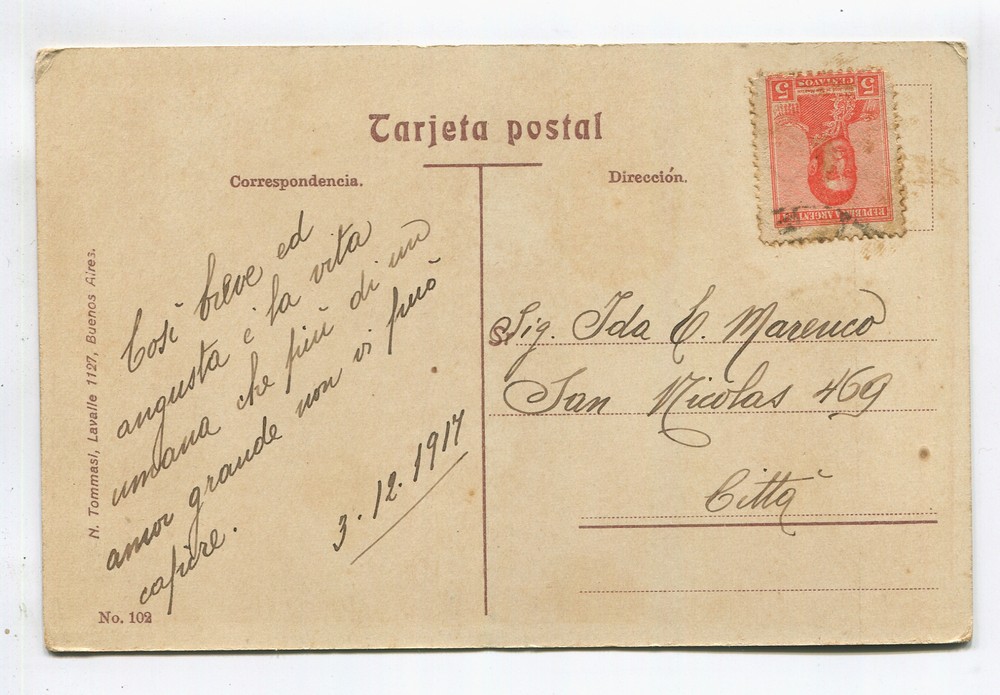 Tarjeta postal
Correspondencia.
Dirección.
Così breve ed
angusta è la vita
umana che più di un
amor grande non vi può
capire.
3. 12. 1917
Sig. Ida C. Marenco
San Nicolas 469
Città
N. Tommasi, Lavalle 1127, Buenos Aires.
No. 102
5 CENTAVOS 5
REPUBLICA ARGENTINA